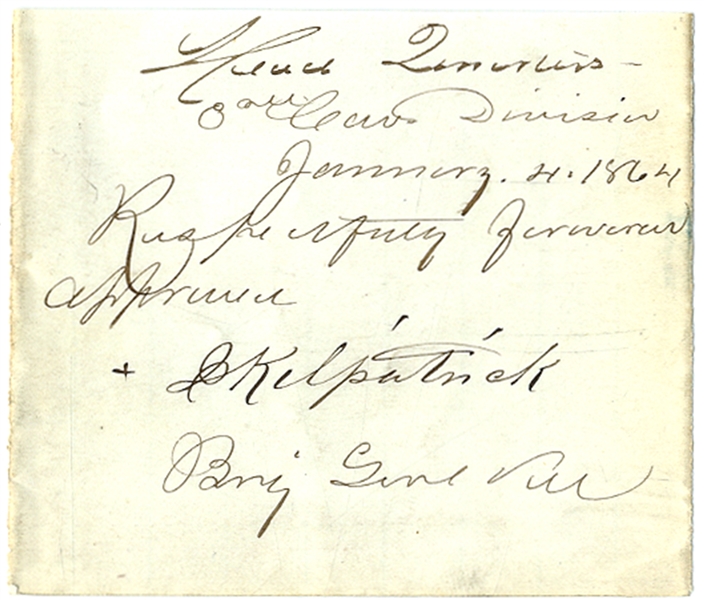 Head Quarters -
3rd Cav. Division
January. 4. 1864
Respectfully forward
approved
+ JKilpatrick
Brig Genl Vol